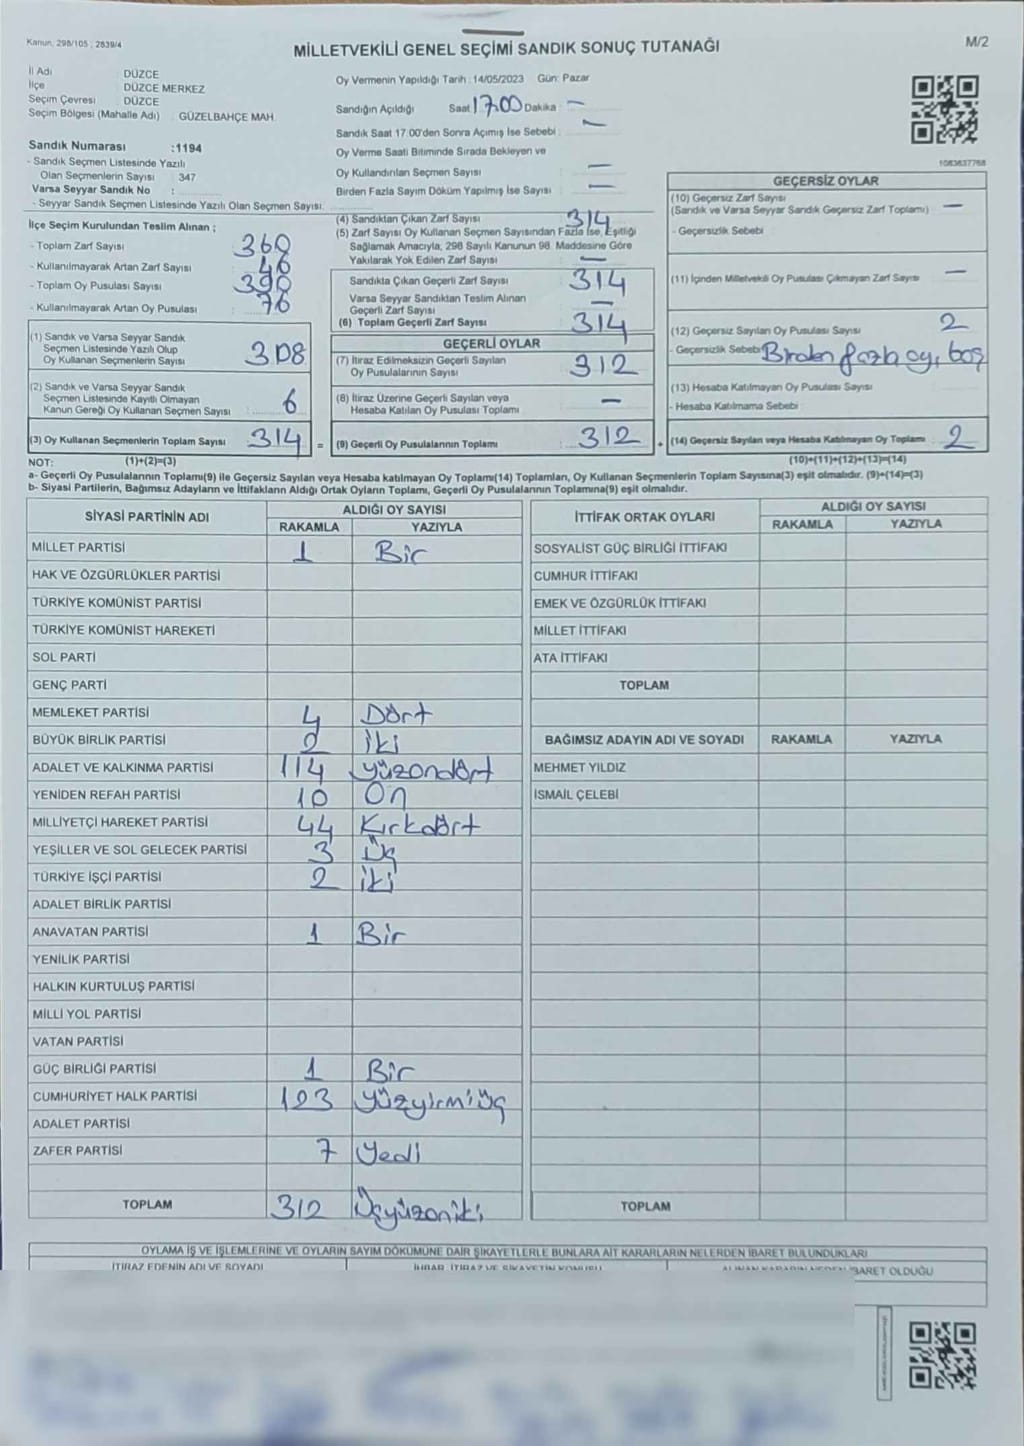 Kanun, 298/105 ; 2839/4
MİLLETVEKİLİ GENEL SEÇİMİ SANDIK SONUÇ TUTANAĞI
M/2
İl Adı : DÜZCE
İlçe : DÜZCE MERKEZ
Seçim Çevresi : DÜZCE
Seçim Bölgesi (Mahalle Adı) : GÜZELBAHÇE MAH.
Sandık Numarası :1194
- Sandık Seçmen Listesinde Yazılı
Olan Seçmenlerin Sayısı : 347
Varsa Seyyar Sandık No :
- Seyyar Sandık Seçmen Listesinde Yazılı Olan Seçmen Sayısı:
Oy Vermenin Yapıldığı Tarih : 14/05/2023 Gün: Pazar
Sandığın Açıldığı Saat 17.00 Dakika : —
Sandık Saat 17.00'den Sonra Açımış İse Sebebi : —
Oy Verme Saati Bitiminde Sırada Bekleyen ve
Oy Kullandırılan Seçmen Sayısı —
Birden Fazla Sayım Döküm Yapılmış İse Sayısı —
1083637768
İlçe Seçim Kurulundan Teslim Alınan ;
- Toplam Zarf Sayısı 360
- Kullanılmayarak Artan Zarf Sayısı 46
- Toplam Oy Pusulası Sayısı 390
- Kullanılmayarak Artan Oy Pusulası 76
(1) Sandık ve Varsa Seyyar Sandık
Seçmen Listesinde Yazılı Olup
Oy Kullanan Seçmenlerin Sayısı 308
(2) Sandık ve Varsa Seyyar Sandık
Seçmen Listesinde Kayıtlı Olmayan
Kanun Gereği Oy Kullanan Seçmen Sayısı 6
(3) Oy Kullanan Seçmenlerin Toplam Sayısı 314 =
(4) Sandıktan Çıkan Zarf Sayısı 314
(5) Zarf Sayısı Oy Kullanan Seçmen Sayısından Fazla İse, Eşitliği
Sağlamak Amacıyla, 298 Sayılı Kanunun 98. Maddesine Göre
Yakılarak Yok Edilen Zarf Sayısı —
Sandıkla Çıkan Geçerli Zarf Sayısı 314
Varsa Seyyar Sandıktan Teslim Alınan
Geçerli Zarf Sayısı —
(6) Toplam Geçerli Zarf Sayısı 314
GEÇERLİ OYLAR
(7) İtiraz Edilmeksizin Geçerli Sayılan
Oy Pusulalarının Sayısı 312
(8) İtiraz Üzerine Geçerli Sayılan veya
Hesaba Katılan Oy Pusulası Toplamı —
(9) Geçerli Oy Pusulalarının Toplamı : 312 +
GEÇERSİZ OYLAR
(10) Geçersiz Zarf Sayısı
(Sandık ve Varsa Seyyar Sandık Geçersiz Zarf Toplamı) —
- Geçersizlik Sebebi
(11) İçinden Milletvekili Oy Pusulası Çıkmayan Zarf Sayısı —
(12) Geçersiz Sayılan Oy Pusulası Sayısı 2
- Geçersizlik Sebebi Birden fazla oy, boş
(13) Hesaba Katılmayan Oy Pusulası Sayısı
- Hesaba Katılmama Sebebi
(14) Geçersiz Sayılan veya Hesaba Katılmayan Oy Toplamı 2
NOT: (1)+(2)=(3)
(10)+(11)+(12)+(13)=(14)
a- Geçerli Oy Pusulalarının Toplamı(9) ile Geçersiz Sayılan veya Hesaba katılmayan Oy Toplamı(14) Toplamları, Oy Kullanan Seçmenlerin Toplam Sayısına(3) eşit olmalıdır. (9)+(14)=(3)
b- Siyasi Partilerin, Bağımsız Adayların ve İttifakların Aldığı Ortak Oyların Toplamı, Geçerli Oy Pusulalarının Toplamına(9) eşit olmalıdır.
SİYASİ PARTİNİN ADI
ALDIĞI OY SAYISI
RAKAMLA YAZIYLA
MİLLET PARTİSİ 1 Bir
HAK VE ÖZGÜRLÜKLER PARTİSİ
TÜRKİYE KOMÜNİST PARTİSİ
TÜRKİYE KOMÜNİST HAREKETİ
SOL PARTİ
GENÇ PARTİ
MEMLEKET PARTİSİ 4 Dört
BÜYÜK BİRLİK PARTİSİ 2 İki
ADALET VE KALKINMA PARTİSİ 114 yüzondört
YENİDEN REFAH PARTİSİ 10 On
MİLLİYETÇİ HAREKET PARTİSİ 44 Kırkdört
YEŞİLLER VE SOL GELECEK PARTİSİ 3 Üç
TÜRKİYE İŞÇİ PARTİSİ 2 iki
ADALET BİRLİK PARTİSİ
ANAVATAN PARTİSİ 1 Bir
YENİLİK PARTİSİ
HALKIN KURTULUŞ PARTİSİ
MİLLİ YOL PARTİSİ
VATAN PARTİSİ
GÜÇ BİRLİĞİ PARTİSİ 1 Bir
CUMHURİYET HALK PARTİSİ 123 yüzyirmiüç
ADALET PARTİSİ
ZAFER PARTİSİ 7 Yedi
TOPLAM 312 Üçyüzoniki
İTTİFAK ORTAK OYLARI
ALDIĞI OY SAYISI
RAKAMLA YAZIYLA
SOSYALİST GÜÇ BİRLİĞİ İTTİFAKI
CUMHUR İTTİFAKI
EMEK VE ÖZGÜRLÜK İTTİFAKI
MİLLET İTTİFAKI
ATA İTTİFAKI
TOPLAM
BAĞIMSIZ ADAYIN ADI VE SOYADI RAKAMLA YAZIYLA
MEHMET YILDIZ
İSMAİL ÇELEBİ
TOPLAM
OYLAMA İŞ VE İŞLEMLERİNE VE OYLARIN SAYIM DÖKÜMÜNE DAİR ŞİKAYETLERLE BUNLARA AİT KARARLARIN NELERDEN İBARET BULUNDUKLARI
İTİRAZ EDENİN ADI VE SOYADI
İHBAR, İTİRAZ VE ŞİKAYETİN KONUSU
İBARET OLDUĞU